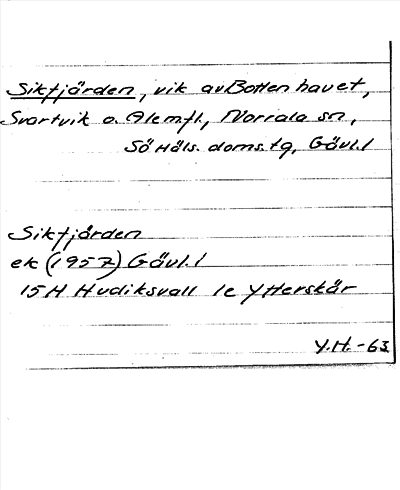 Sikfjärden, vik av Bottenhavet,
Svartvik o. Ålemfl., Norrala sn,
SöHäls. doms.tg, Gävl.l
Sikfjärden
ek (1957) Gävl.l
15H Hudiksvall 1c Ytterskär
Y.H.-63